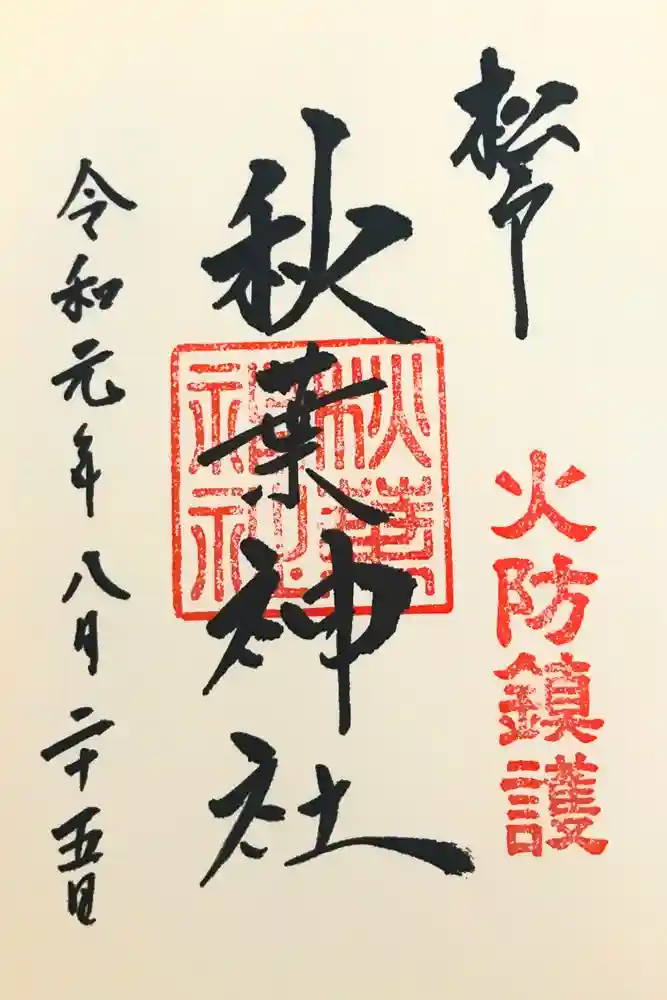 火防鎮護
秋葉神社
秋葉神社
令和元年八月二十五日